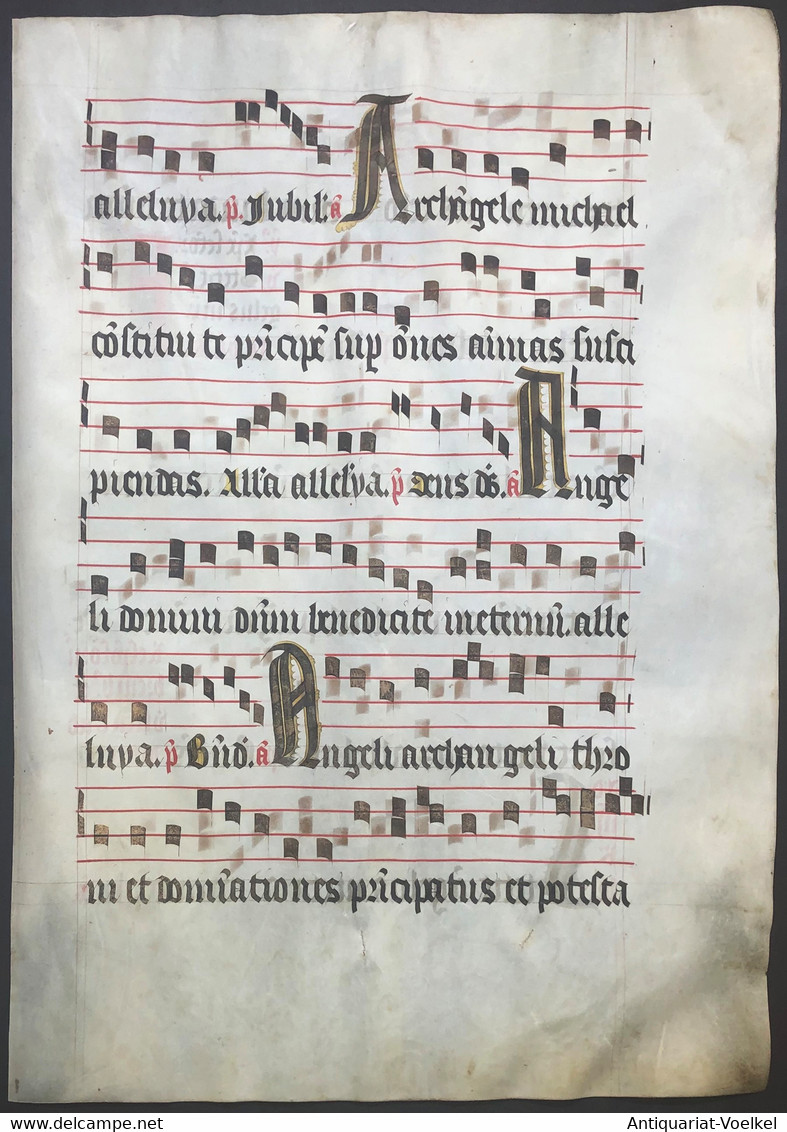 alleluya. p̄. Jubil. a Archāgele michael
cōstitui te prīcipē sup̱ ōnes aīmas susci
piendas. All'a allel'ya. p̄ Deus ds̄. a Ange
li domini dn̄m benedicite ineternū. alle
luya. p̄ Bn̄d. a Angeli archangeli thro
ni et domīationes prīcipatus et potesta
Antiquariat-Voelkel